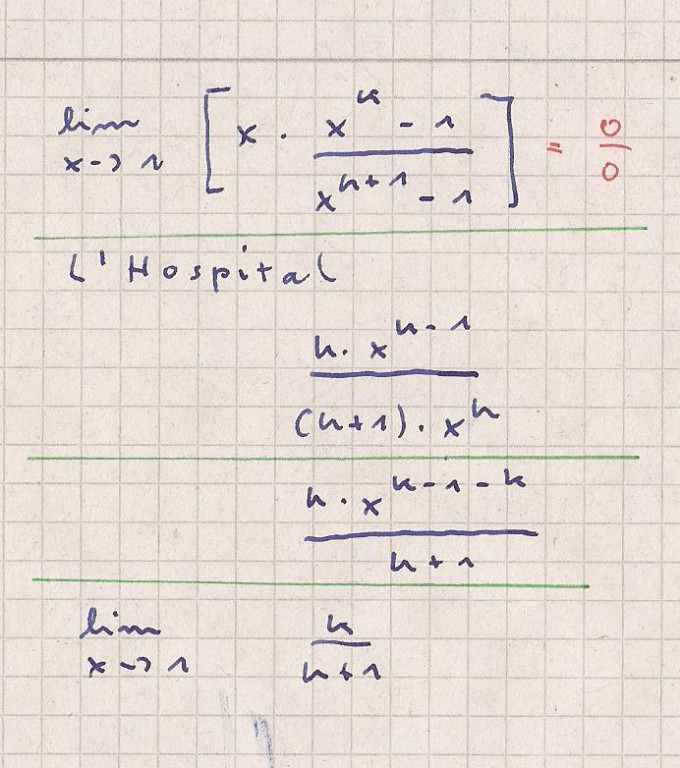 lim x→1 [ x · (x^n - 1) / (x^(n+1) - 1) ] "=" 0/0
L'Hospital
n · x^(n-1) / ((n+1) · x^n)
n · x^(n-1-n) / (n+1)
lim x→1 n / (n+1)